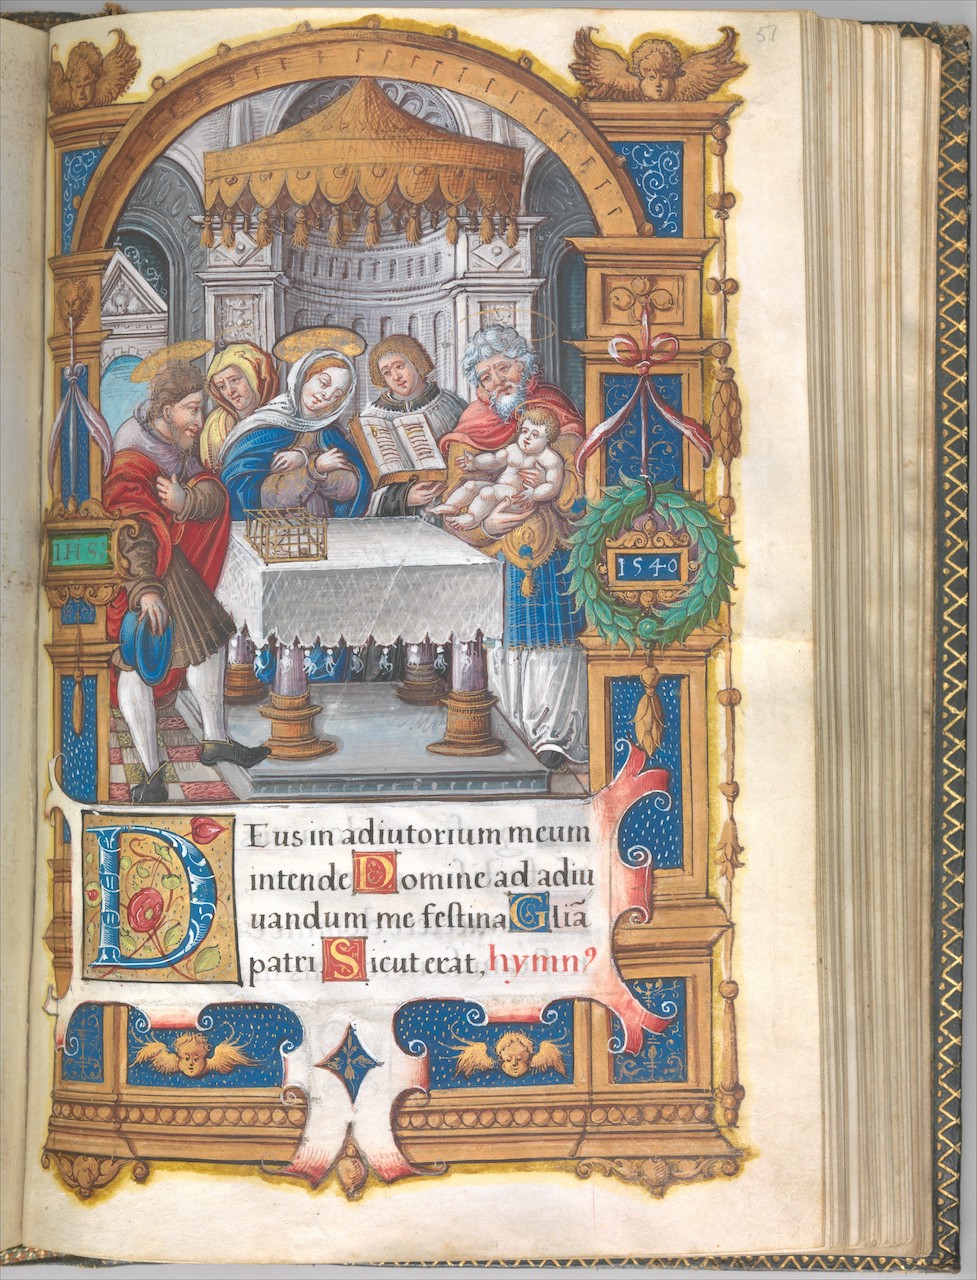 57
IHS
1540
Deus in adiutorium meum
intende Domine ad adiu
uandum me festina Gliã
patri Sicut erat, hymnꝰ